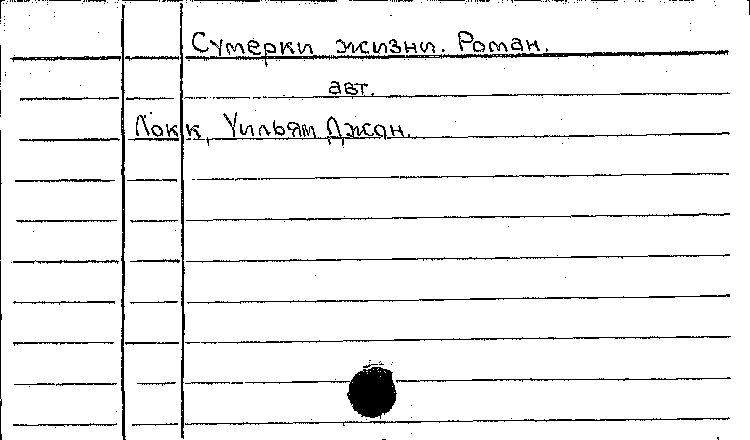 Сумерки жизни. Роман.
авт.
Локк, Уильям Джон.